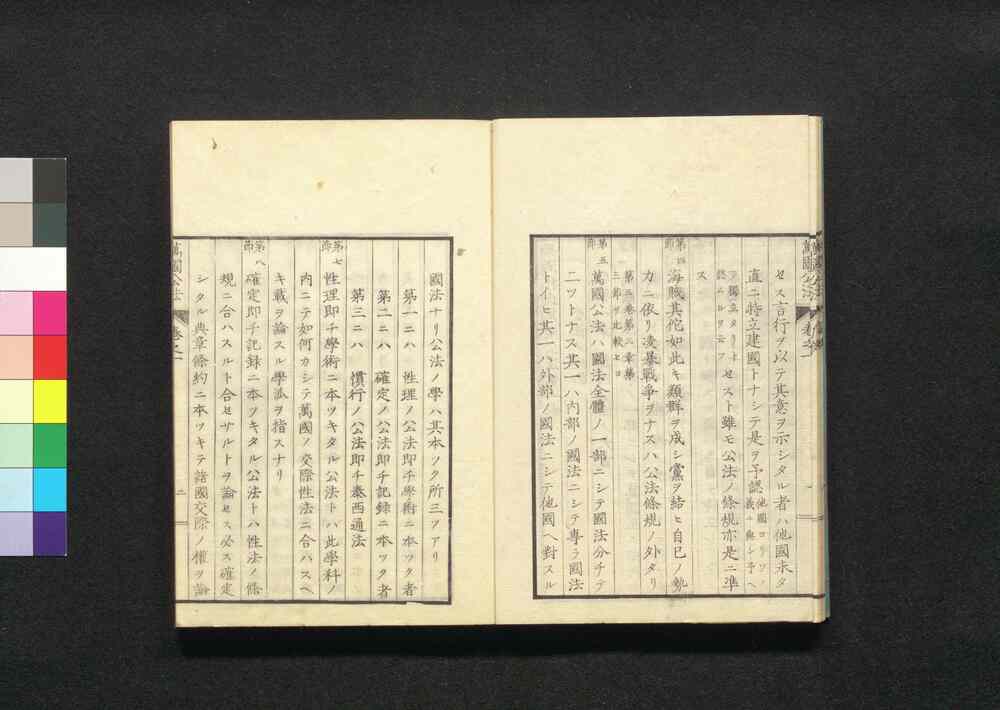 萬國公法
セス言行ヲ以テ其意ヲ示シタル者ハ他國未タ
直ニ特立建國トナシテ是ヲ予認
セスト雖モ公法ノ條規亦是ニ準
ス
第四節
海賊其佗如此キ類群ヲ成シ黨ヲ結ヒ自己ノ勢
カニ依リ凌暴戰爭ヲナスハ公法條規ノ外タリ
第三卷第二章第
三節ヲ比較セヨ
第五節
萬國公法ハ國法全體ノ一部ニシテ國法分チテ
二ツトナス其一ハ内部ノ國法ニシテ專ラ國法
トイヒ其一ハ外部ノ國法ニシテ他國ヘ對スル
國法ナリ公法ノ學ハ其本ツク所三ツアリ
第一ニハ 性理ノ公法即チ學術ニ本ツク者
第二ニハ 確定ノ公法即チ記録ニ本ツク者
第三ニハ 慣行ノ公法即チ泰西通法
第七節
性理即チ學術ニ本ツキタル公法トハ此學科ノ
内ニテ如何カシテ萬國ノ交際性法ニ合ハスヘ
キ哉ヲ論スル學派ヲ指スナリ
第八節
確定即チ記録ニ本ツキタル公法トハ性法ノ條
規ニ合ハスルト合セサルトヲ論セス必ス確定
シタル典章條約ニ本ツキテ諸國交際ノ權ヲ論
萬國公法
卷之一
二